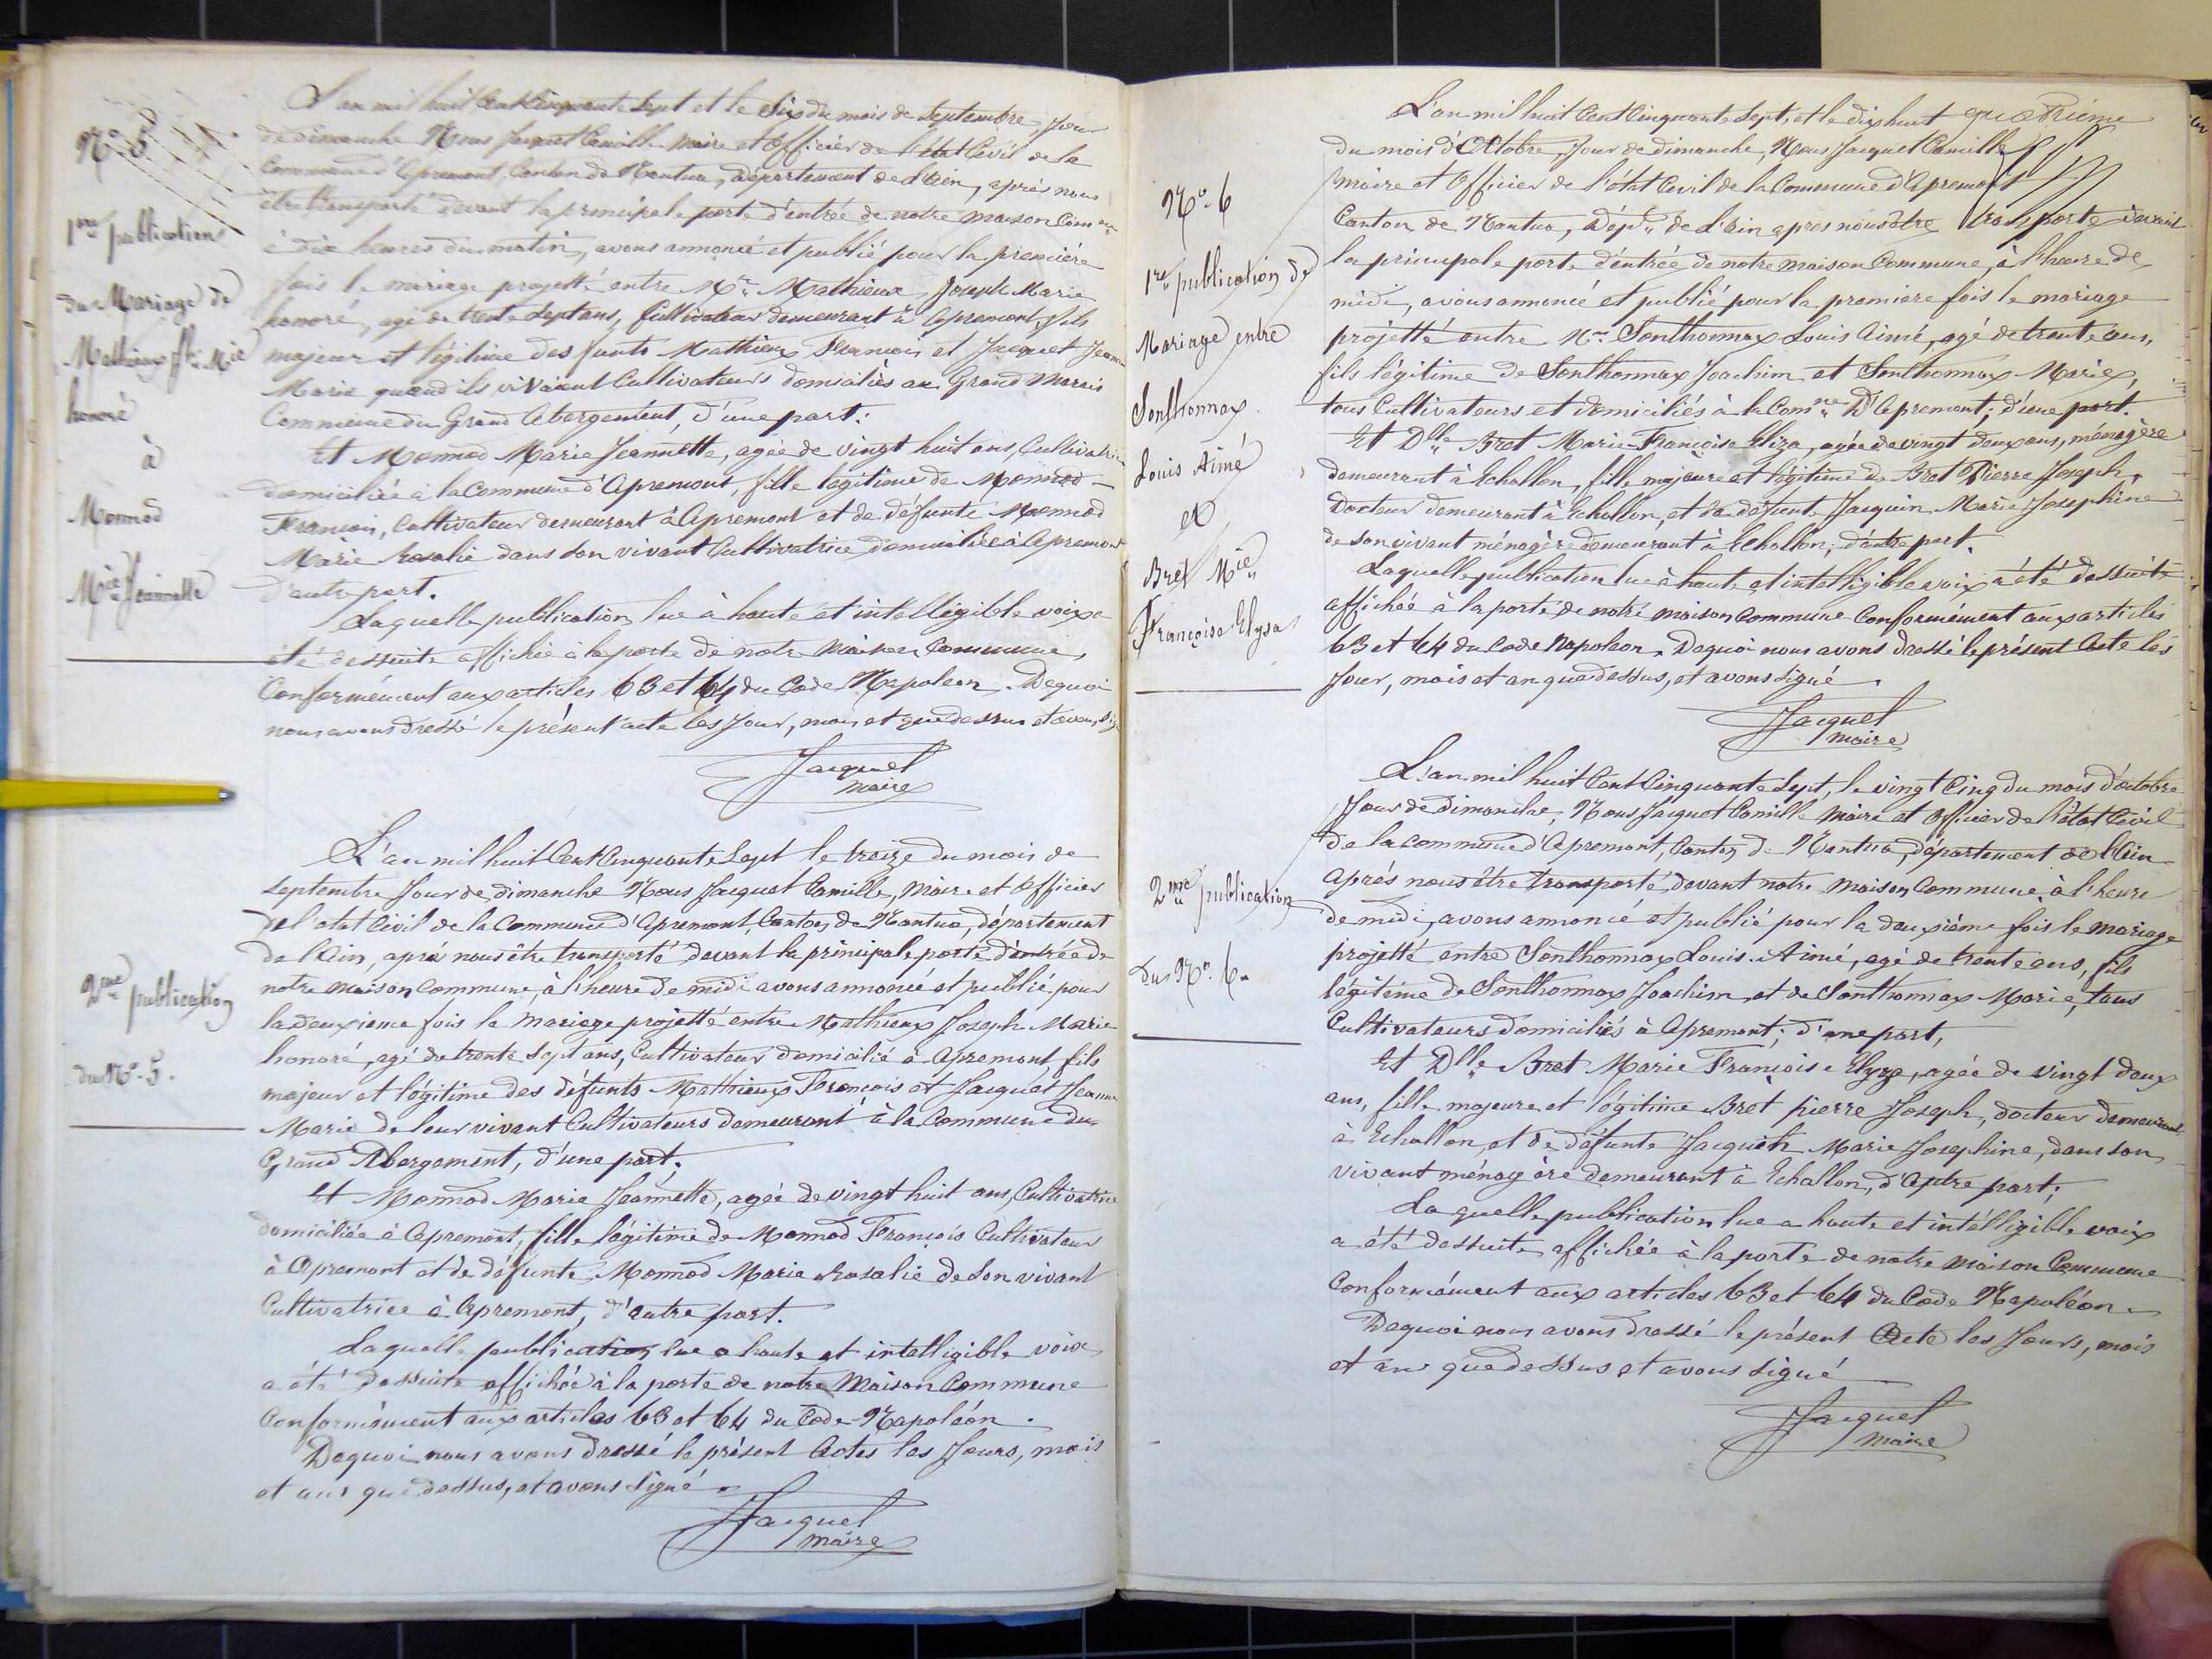 N° 5
1re publication
du Mariage de
Mathieux Jh Mie
honoré
à
Monnod
Mie Jeannette
L'an mil huit Cent Cinquante Sept et le Six du mois de Septembre, Jour
de Dimanche Nous Jacquet Camille Maire et Officier de l'état Civil de la
Commune d'Apremont, Canton de Nantua, département de l'Ain, après nous
être transporté devant la principale porte d'entrée de notre maison Comne
à dix heures du matin, avons annoncé et publié pour la première
fois le mariage projetté entre Mr Mathieux Joseph Marie
honoré, agé de trente Sept ans, Cultivateur demeurant à Apremont, fils
majeur et légitime des funts Mathieux François et Jacquet Jeanne
Marie quand ils vivaient Cultivateurs domiciliés au Grand Marais
Commune du Grand Abergement, d'une part.
Et Monnod Marie Jeannette, agée de vingt huit ans, Cultivatrice
domiciliée à la Commune d'Apremont, fille légitime de Monnod
François, Cultivateur demeurant à Apremont et de défunte Monnod
Marie Rosalie dans son vivant Cultivatrice domiciliée à Apremont
d'autre part.
Laquelle publication lue à haute et intelligible voix a
été dessuite affichée à la porte de notre Maison Commune,
Conformément aux articles 63 et 64 du Code Napoleon. Dequoi
nous avons dressé le présent acte les Jour, mois et que dessus et avons
Jacquet
maire
2me publication
du N° 5.
L'an mil huit Cent Cinquante Sept le treize du mois de
Septembre Jour de dimanche Nous Jacquet Camille, Maire et Officier
de l'etat Civil de la Commune d'Apremont, Canton de Nantua, département
de l'Ain, après nous être transporté devant la principale porte d'entrée de
notre maison Commune, à l'heure de midi avons annoncé et publié pour
la deuxieme fois le Mariage projetté entre Mathieux Joseph Marie
honoré, agé de trente Sept ans, Cultivateur domicilié à Apremont, fils
majeur et légitime des défunts Mathieux François et Jacquet Jeanne
Marie de leur vivant Cultivateurs demeurant à la Commune du
Grand Abergement, d'une part.
Et Monnod Marie Jeannette, agée de vingt huit ans, Cultivatrice
domiciliée à Apremont, fille légitime de Monnod François Cultivateur
à Apremont et de défunte Monnod Marie Rosalie de Son vivant
Cultivatrice à Apremont, d'autre part.
Laquelle publication lue a haute et intelligible voix
a été dessuite affichée à la porte de notre Maison Commune
Conformément aux articles 63 et 64 du Code Napoléon.
Dequoi nous avons dressé le présent Actes les Jours, mois
et ans que dessus, et avons Signé.
Jacquet
maire
N° 6
1re publication de
Mariage entre
Sonthonnax
Louis Aimé
et
Bret Mie
Françoise Elysa
L'an mil huit Cent Cinquante Sept, et le dix huit quatrième
du mois d'Octobre, Jour de dimanche, Nous Jacquet Camille
Maire et Officier de l'état Civil de la Commune d'Apremont
Canton de Nantua, Dépt de l'Ain apres nous être transporté devant
la principale porte d'entrée de notre Maison Commune, à l'heure de
midi, avons annoncé et publié pour la premiere fois le mariage
projetté entre Mr Sonthonnax Louis Aimé, agé de trente ans,
fils légitime de Sonthonnax Joachim et Sonthonnax Marie,
tous Cultivateurs et domiciliés à la Comne D'Apremont; d'une part.
Et Dlle Bret Marie-Françoise Eliza, agée de vingt deux ans, ménagère
demeurant à Echallon, fille majeure et légitime de Bret Pierre Joseph,
Docteur demeurant à Echallon, et de défunte Jacquin Marie Josephine
de son vivant ménagère demeurant à Echallon, d'autre part.
Laquelle publication lue à haute et intelligible voix a été dessuite
affichée à la porte de notre maison Commune Conformément aux articles
63 et 64 du Code Napoleon. Dequoi nous avons dressé le présent Acte les
Jour, mois et an que dessus, et avons signé.
Jacquet
maire
2me publication
du N° 6.
L'an mil huit Cent Cinquante Sept, le vingt Cinq du mois d'octobre
Jour de dimanche, Nous Jacquet Camille Maire et Officier de l'état Civil
de la Commune d'Apremont, Canton de Nantua, département de l'Ain
après nous être transporté devant notre Maison Commune à l'heure
de midi, avons annoncé et publié pour la deuxième fois le mariage
projetté entre Sonthonnax Louis-Aimé, agé de trente ans, fils
légitime de Sonthonnax Joachim, et de Sonthonnax Marie, tous
Cultivateurs domiciliés à Apremont; d'une part,
Et Dlle Bret Marie Françoise Elyza, agée de vingt deux
ans, fille majeure et légitime Bret pierre Joseph, docteur demeurant
à Echallon, et de défunte Marie Josephine, dans son
vivant ménagère demeurant à Echallon, d'Autre part;
Laquelle publication lue a haute et intélligible voix
a été dessuite affichée à la porte de notre Maison Commune
Conformément aux articles 63 et 64 du Code Napoléon.
Dequoi nous avons dressé le présent Acte les Jours, mois
et an que dessus et avons Signé
Jacquet
maire